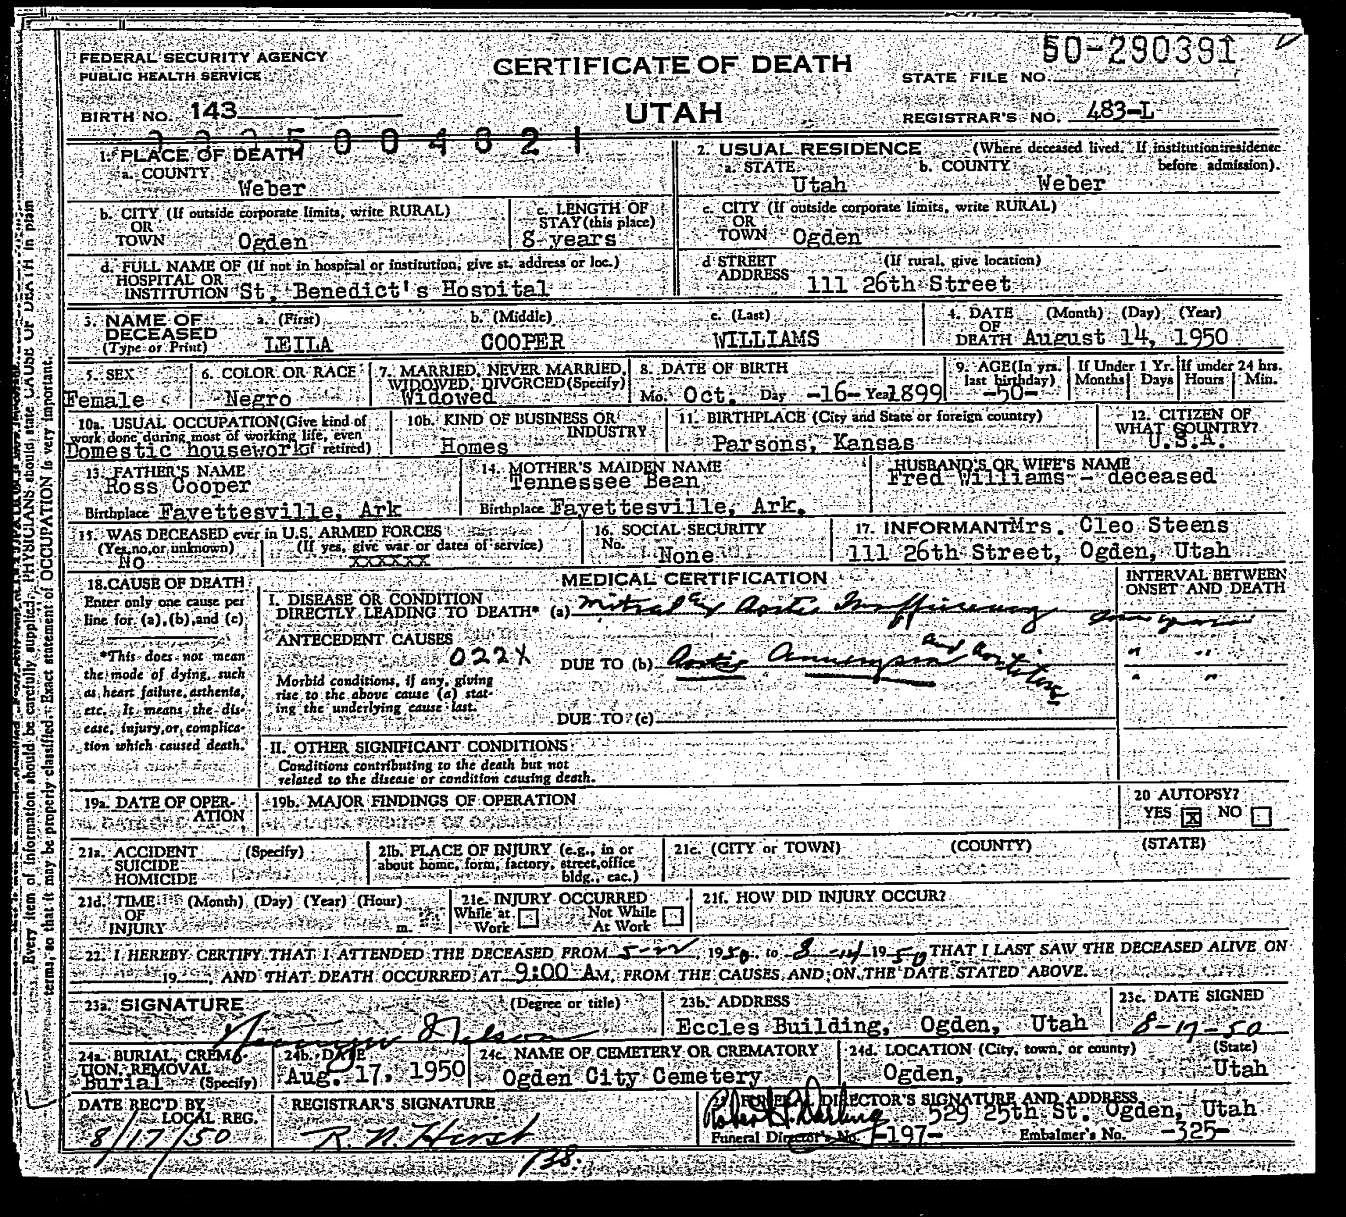 FEDERAL SECURITY AGENCY
PUBLIC HEALTH SERVICE
BIRTH NO. 143
CERTIFICATE OF DEATH
UTAH
50-290391
STATE FILE NO.
REGISTRAR'S NO. 483-L
1. PLACE OF DEATH
a. COUNTY
Weber
2. USUAL RESIDENCE (Where deceased lived. If institution: residence
a. STATE b. COUNTY before admission).
Utah Weber
b. CITY (If outside corporate limits, write RURAL)
OR
TOWN Ogden
c. LENGTH OF
STAY (this place)
8 years
c. CITY (If outside corporate limits, write RURAL)
OR
TOWN Ogden
d. FULL NAME OF (If not in hospital or institution, give st. address or loc.)
HOSPITAL OR
INSTITUTION St. Benedict's Hospital
d STREET (If rural, give location)
ADDRESS 111 26th Street
3. NAME OF a. (First) b. (Middle) c. (Last)
DECEASED
(Type or Print) LEILA COOPER WILLIAMS
4. DATE (Month) (Day) (Year)
OF
DEATH August 14, 1950
5. SEX
Female
6. COLOR OR RACE
Negro
7. MARRIED, NEVER MARRIED,
WIDOWED, DIVORCED (Specify)
Widowed
8. DATE OF BIRTH
Mo. Oct. Day -16- Year 1899
9. AGE (In yrs. last birthday)
-50-
If Under 1 Yr.
Months Days
If under 24 hrs.
Hours Min.
10a. USUAL OCCUPATION (Give kind of
work done during most of working life, even
if retired)
Domestic housework
10b. KIND OF BUSINESS OR
INDUSTRY
Homes
11. BIRTHPLACE (City and State or foreign country)
Parsons, Kansas
12. CITIZEN OF
WHAT COUNTRY?
U.S.A.
13. FATHER'S NAME
Ross Cooper
Birthplace Fayettesville, Ark
14. MOTHER'S MAIDEN NAME
Tennessee Bean
Birthplace Fayettesville, Ark.
HUSBAND'S OR WIFE'S NAME
Fred Williams - deceased
15. WAS DECEASED ever in U.S. ARMED FORCES
(Yes, no, or unknown) (If yes, give war or dates of service)
No xxxxxx
16. SOCIAL SECURITY
No.
None
17. INFORMANT Mrs. Cleo Steens
111 26th Street, Ogden, Utah
18. CAUSE OF DEATH
Enter only one cause per
line for (a), (b), and (c)
*This does not mean
the mode of dying, such
as heart failure, asthenia,
etc. It means the dis-
ease, injury, or complica-
tion which caused death.
MEDICAL CERTIFICATION
INTERVAL BETWEEN
ONSET AND DEATH
I. DISEASE OR CONDITION
DIRECTLY LEADING TO DEATH* (a) Mitral & Aortic Insufficiency
ANTECEDENT CAUSES
022X
DUE TO (b) Aortic Aneurysm and Aortitis
" "
" "
Morbid conditions, if any, giving
rise to the above cause (a) stat-
ing the underlying cause last.
DUE TO (c)
II. OTHER SIGNIFICANT CONDITIONS
Conditions contributing to the death but not
related to the disease or condition causing death.
19a. DATE OF OPER-
ATION
19b. MAJOR FINDINGS OF OPERATION
20 AUTOPSY?
YES X NO
21a. ACCIDENT (Specify)
SUICIDE
HOMICIDE
21b. PLACE OF INJURY (e.g., in or
about home, form, factory, street, office
bldg., etc.)
21c. (CITY or TOWN) (COUNTY) (STATE)
21d. TIME (Month) (Day) (Year) (Hour)
OF
INJURY m.
21e. INJURY OCCURRED
While at Work Not While At Work
21f. HOW DID INJURY OCCUR?
22. I HEREBY CERTIFY THAT I ATTENDED THE DECEASED FROM 1950, to 8-14 1950 THAT I LAST SAW THE DECEASED ALIVE ON
19 , AND THAT DEATH OCCURRED AT 9:00 A M. FROM THE CAUSES AND ON THE DATE STATED ABOVE.
23a. SIGNATURE (Degree or title)
Nelson
23b. ADDRESS
Eccles Building, Ogden, Utah
23c. DATE SIGNED
8-17-50
24a. BURIAL, CREMA-
TION, REMOVAL
Burial (Specify)
24b. DATE
Aug. 17, 1950
24c. NAME OF CEMETERY OR CREMATORY
Ogden City Cemetery
24d. LOCATION (City, town, or county) (State)
Ogden, Utah
DATE REC'D BY
LOCAL REG.
8/17/50
REGISTRAR'S SIGNATURE
R. N. Hirst
FUNERAL DIRECTOR'S SIGNATURE AND ADDRESS
529 25th St. Ogden, Utah
Funeral Director's No. -197- Embalmer's No. -325-
Every item of information should be carefully supplied. PHYSICIANS should state CAUSE OF DEATH in plain
terms, so that it may be properly classified. Exact statement of OCCUPATION is very important.